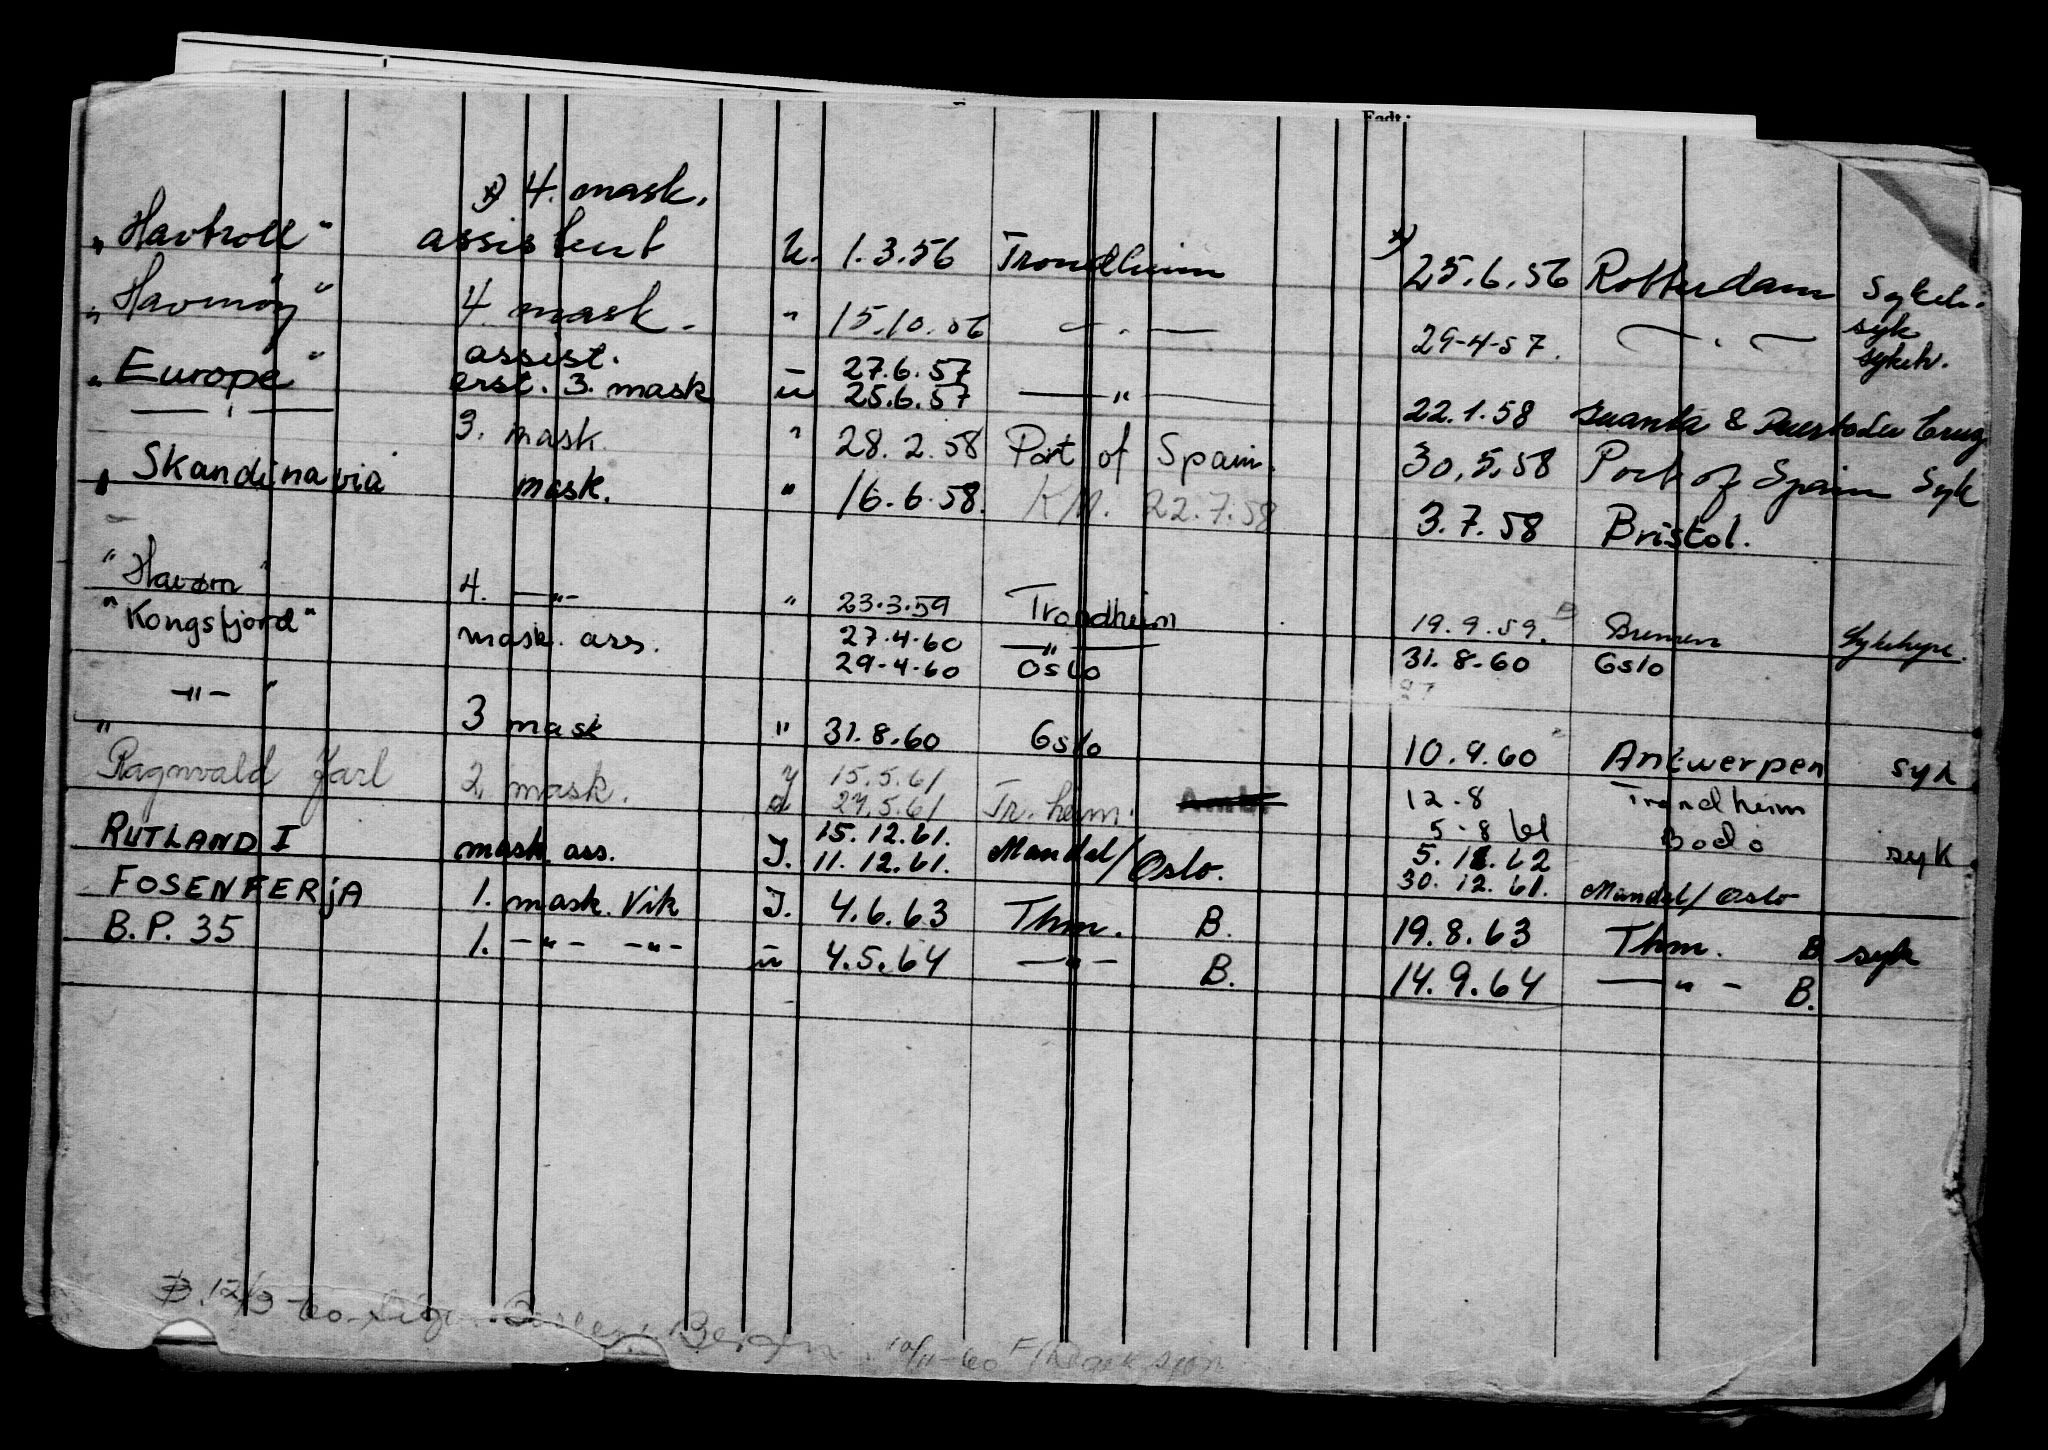 Født:
x) 4. mask.
"Havtroll" assistent u. 1.3.56 Trondheim x) 25.6.56 Rotterdam Sykeh.
"Havmøy" 4. mask. " 15.10.56 — . — 29-4-57. — . — syk sykeh.
"Europe" assist. 27.6.57
erst. 3. mask u 25.6.57 — " — 22.1.58
— " — 3. mask. " 28.2.58 Port of Spain. 30.5.58 Port of Spain Syk
"Skandinavia" mask. " 16.6.58. KM. 22.7.58 3.7.58 Bristol.
"Havørn" 4. — " — " 23.3.59 Trondheim 19.9.59. Bremen
"Kongsfjord" mask. ass. 27.4.60 — " —
29-4-60 Oslo 31.8.60 Oslo
" — " — " 3 mask " 31.8.60 Oslo 10.9.60 Antwerpen syk
Ragnvald Jarl 2. mask. y 15.5.61 12.8 Trondheim
d 27.5.61 Tr.heim. 5-8 61 Bodø syk
RUTLAND I mask. ass. J. 15.12.61. Mandal/Oslo. 5.12.62
11.12.61. 30.12.61. Mandal/Oslo
FOSENFERJA 1. mask. Vik J. 4.6.63 Thm. B. 19.8.63 Thm. B syk
B.P. 35 1. — " — — " — u 4.5.64 — " — B. 14.9.64 — " — B.
B. 12/3-60
10/11-60